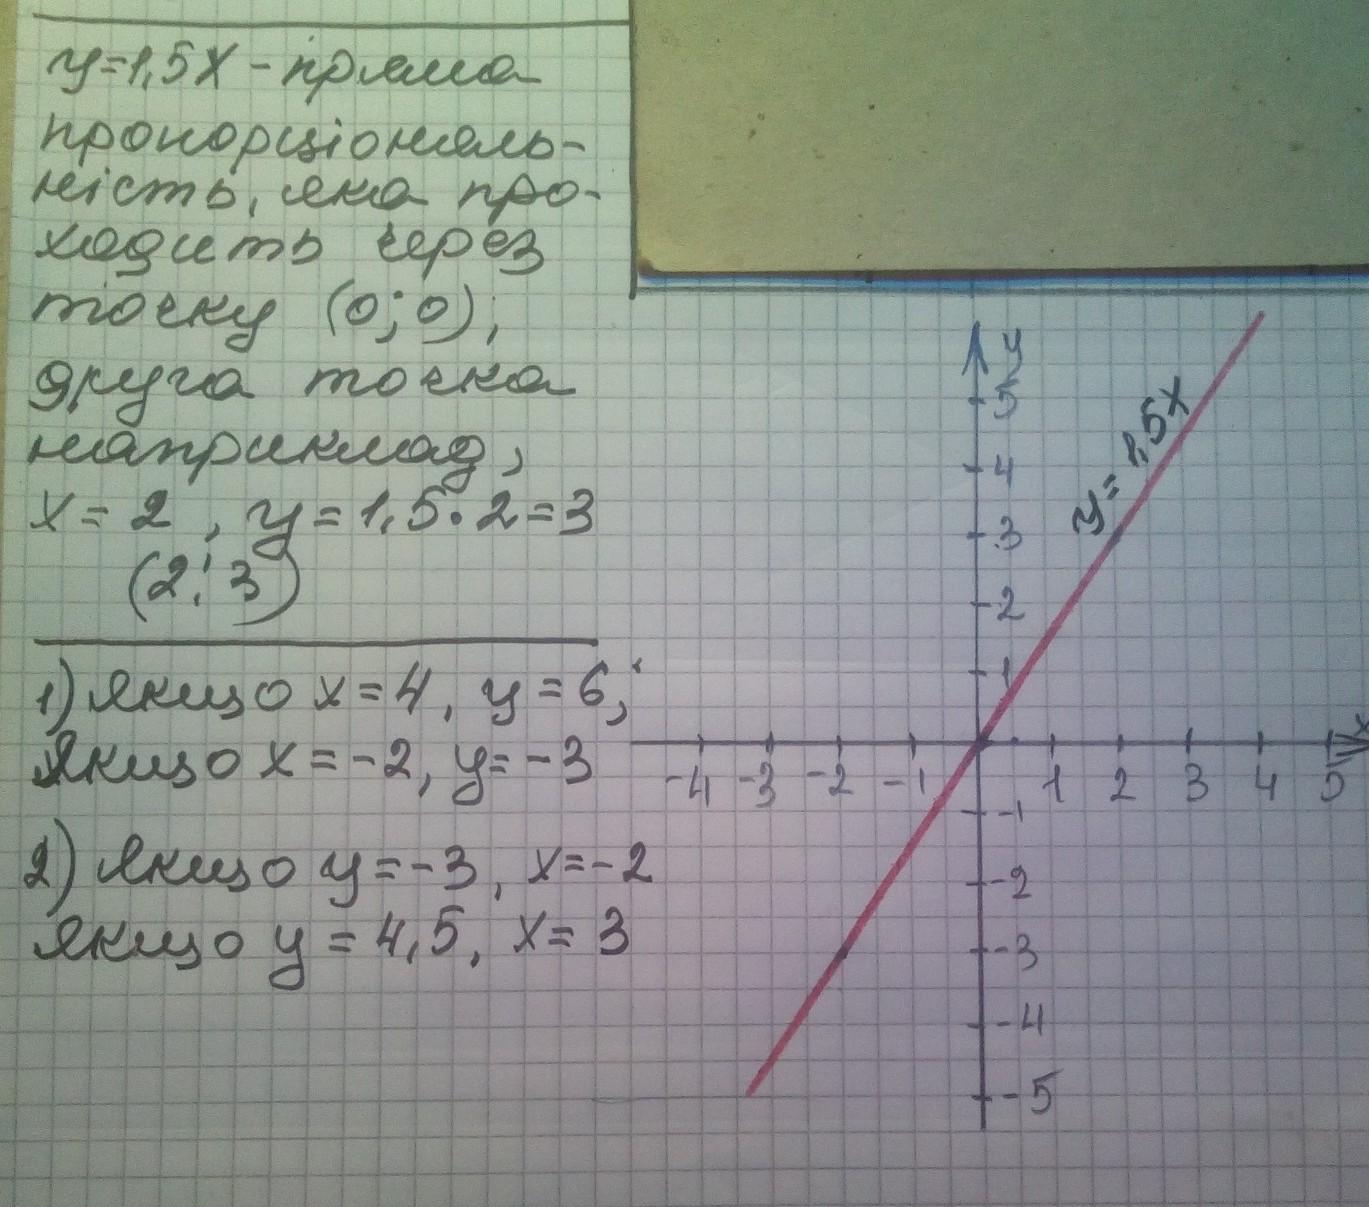 y=1,5x - пряма
пропорціональ-
ність, яка про-
ходить через
точку (0;0),
друга точка
наприклад,
x = 2 , y = 1,5·2=3
(2;3)
1) якщо x=4, y=6;
якщо x=-2, y=-3
2) якщо y=-3, x=-2
якщо y = 4,5, x= 3
y
5
4
3
2
1
y=1,5x
-4 -3 -2 -1 1 2 3 4 5 x
-1
-2
-3
-4
-5